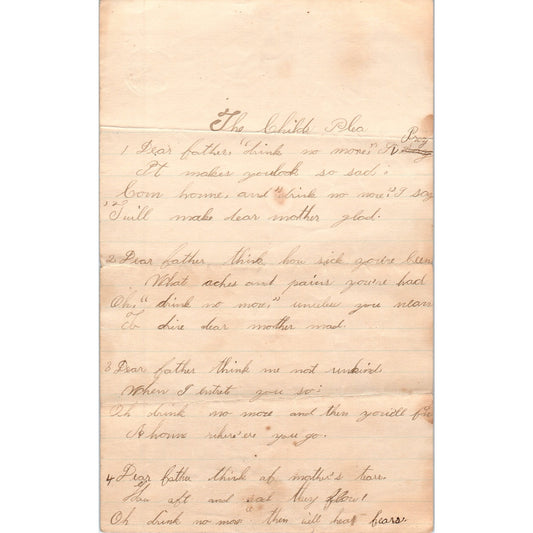 The Childs Plea
1 Dear father, "drink no more," I Pray
It makes you look so sad;
Com home, and "drink no more" I say
'Twill make dear mother glad.
2 Dear father, think how sick you've been
What aches and pains you've had
Oh, "drink no more," unless you mean
To drive dear mother mad.
3 Dear father think me not unkind
When I entret you so:
Oh drink no more and then you'dle
A home where'ere you go.
4 Dear father think of mother's tears
How oft and sad they flow!
Oh drink no more" then will her fears